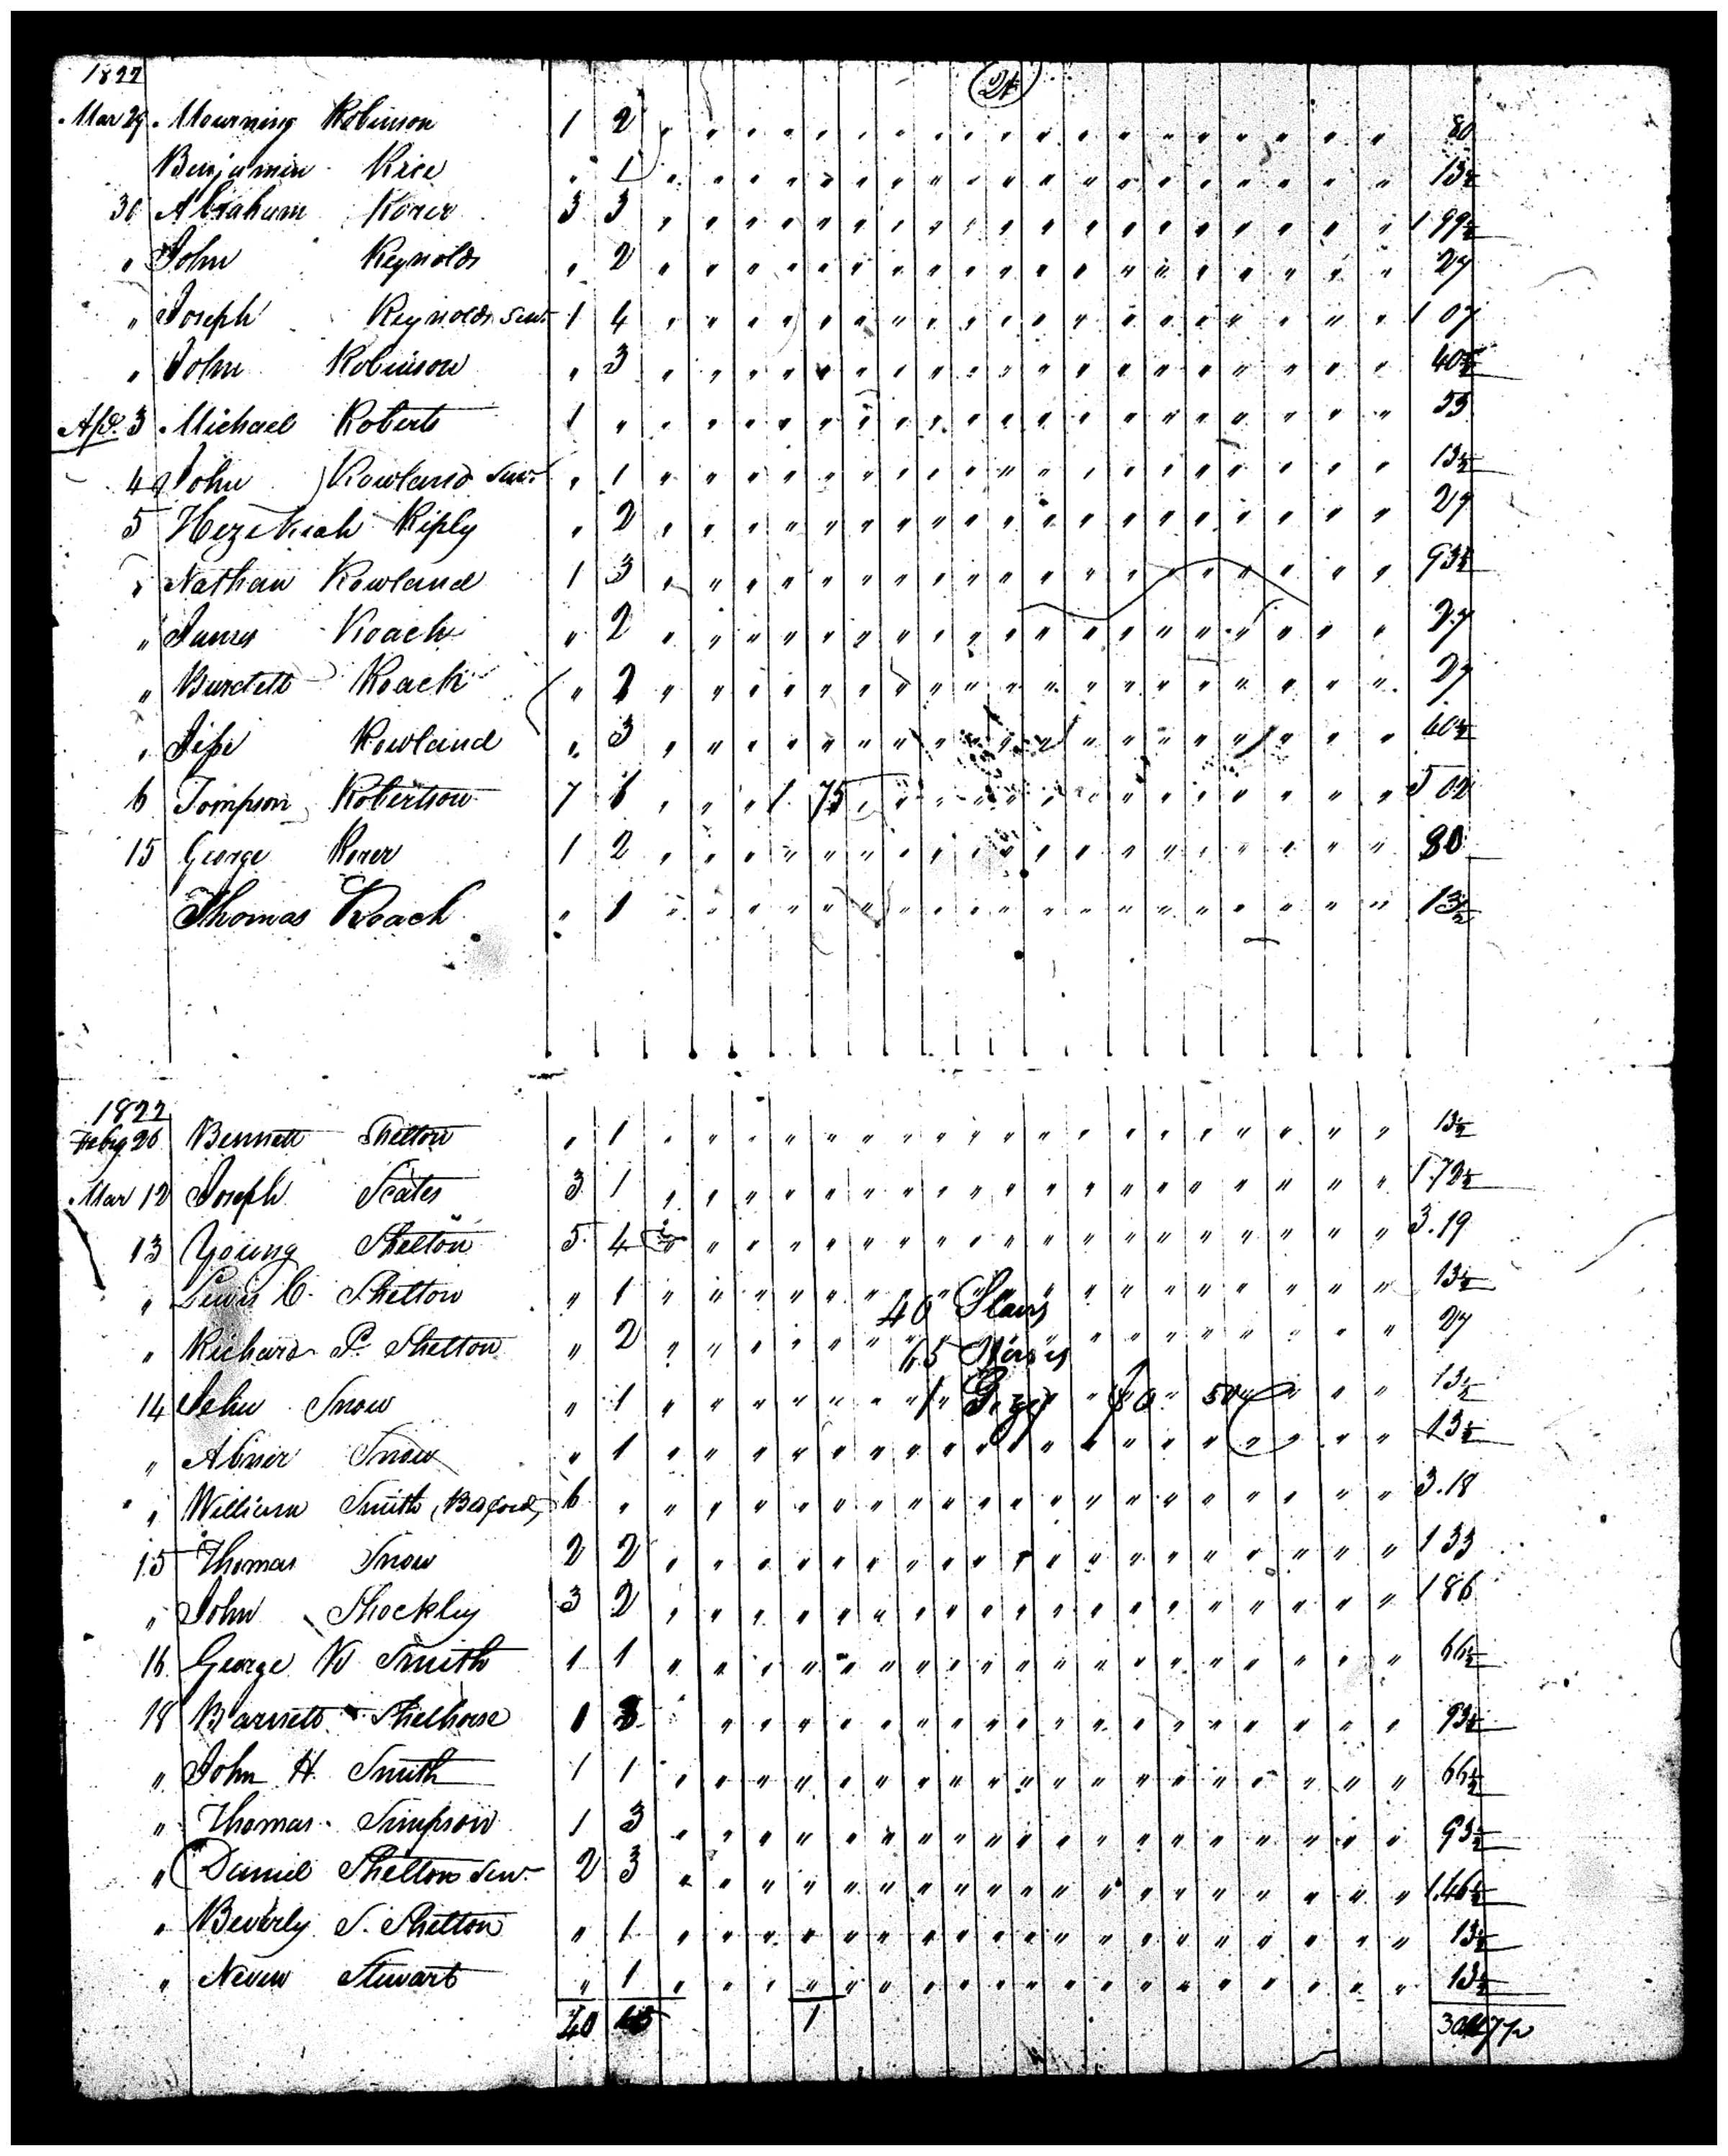 1822
24
Mar 29 Mourning Robinson 1 2 " " " " " " " " " " " " " " " " " " " 80
Benjamin Rice " 1 " " " " " " " " " " " " " " " " " " " 13½
30 Abraham Rorer 3 3 " " " " " " " " " " " " " " " " " " " 1 99½
" John Reynolds " 2 " " " " " " " " " " " " " " " " " " " 27
" Joseph Reynolds Senr. 1 4 " " " " " " " " " " " " " " " " " " " 1 07
" John Robinson " 3 " " " " " " " " " " " " " " " " " " " 40½
Apl. 3 Michael Roberts 1 " " " " " " " " " " " " " " " " " " " " 53
4 John Rowland Senr. " 1 " " " " " " " " " " " " " " " " " " " 13½
5 Hezekiah Riply " 2 " " " " " " " " " " " " " " " " " " " 27
" Nathan Rowland 1 3 " " " " " " " " " " " " " " " " " " " 93½
" James Roach " 2 " " " " " " " " " " " " " " " " " " " 27
" Burdett Roach " 2 " " " " " " " " " " " " " " " " " " " 27
" Jesse Rowland " 3 " " " " " " " " " " " " " " " " " " " 40½
6 Tompson Robertson 7 6 " " " 1 75 " " " " " " " " " " " " " " 5 02
15 George Rorer 1 2 " " " " " " " " " " " " " " " " " " " 80
Thomas Roach " 1 " " " " " " " " " " " " " " " " " " " 13½
1822
Feby 26 Bennett Shelton " 1 " " " " " " " " " " " " " " " " " " " 13½
Mar 12 Joseph Scates 3 1 " " " " " " " " " " " " " " " " " " " 1.72½
13 Young Shelton 5 4 " " " " " " " " " " " " " " " " " " " 3.19
" Lewis C. Shelton " 1 " " " " " " " " " " " " " " " " " " " 13½
40 Slaves
" Richard P. Shelton " 2 " " " " " " " " " " " " " " " " " " " 27
65 Horses
14 John Snow " 1 " " " " " " " 1 Gigg " " 50 " " " " 13½
" Abner Snow " 1 " " " " " " " " " " " " " " " " " " " 13½
" William Smith (Bedford) 6 " " " " " " " " " " " " " " " " " " " " 3.18
15 Thomas Snow 2 2 " " " " " " " " " " " " " " " " " " " 1 33
" John Shockley 3 2 " " " " " " " " " " " " " " " " " " " 1 86
16 George W Smith 1 1 " " " " " " " " " " " " " " " " " " " 66½
18 Barnett Shelhorse 1 3 " " " " " " " " " " " " " " " " " " " 93½
" John H. Smith 1 1 " " " " " " " " " " " " " " " " " " " 66½
" Thomas Simpson 1 3 " " " " " " " " " " " " " " " " " " " 93½
" Daniel Shelton Senr. 2 3 " " " " " " " " " " " " " " " " " " " 1.46½
" Beverly S. Shelton " 1 " " " " " " " " " " " " " " " " " " " 13½
" Stewart " 1 " " " " " " " " " " " " " " " " " " " 13½
40 65 1